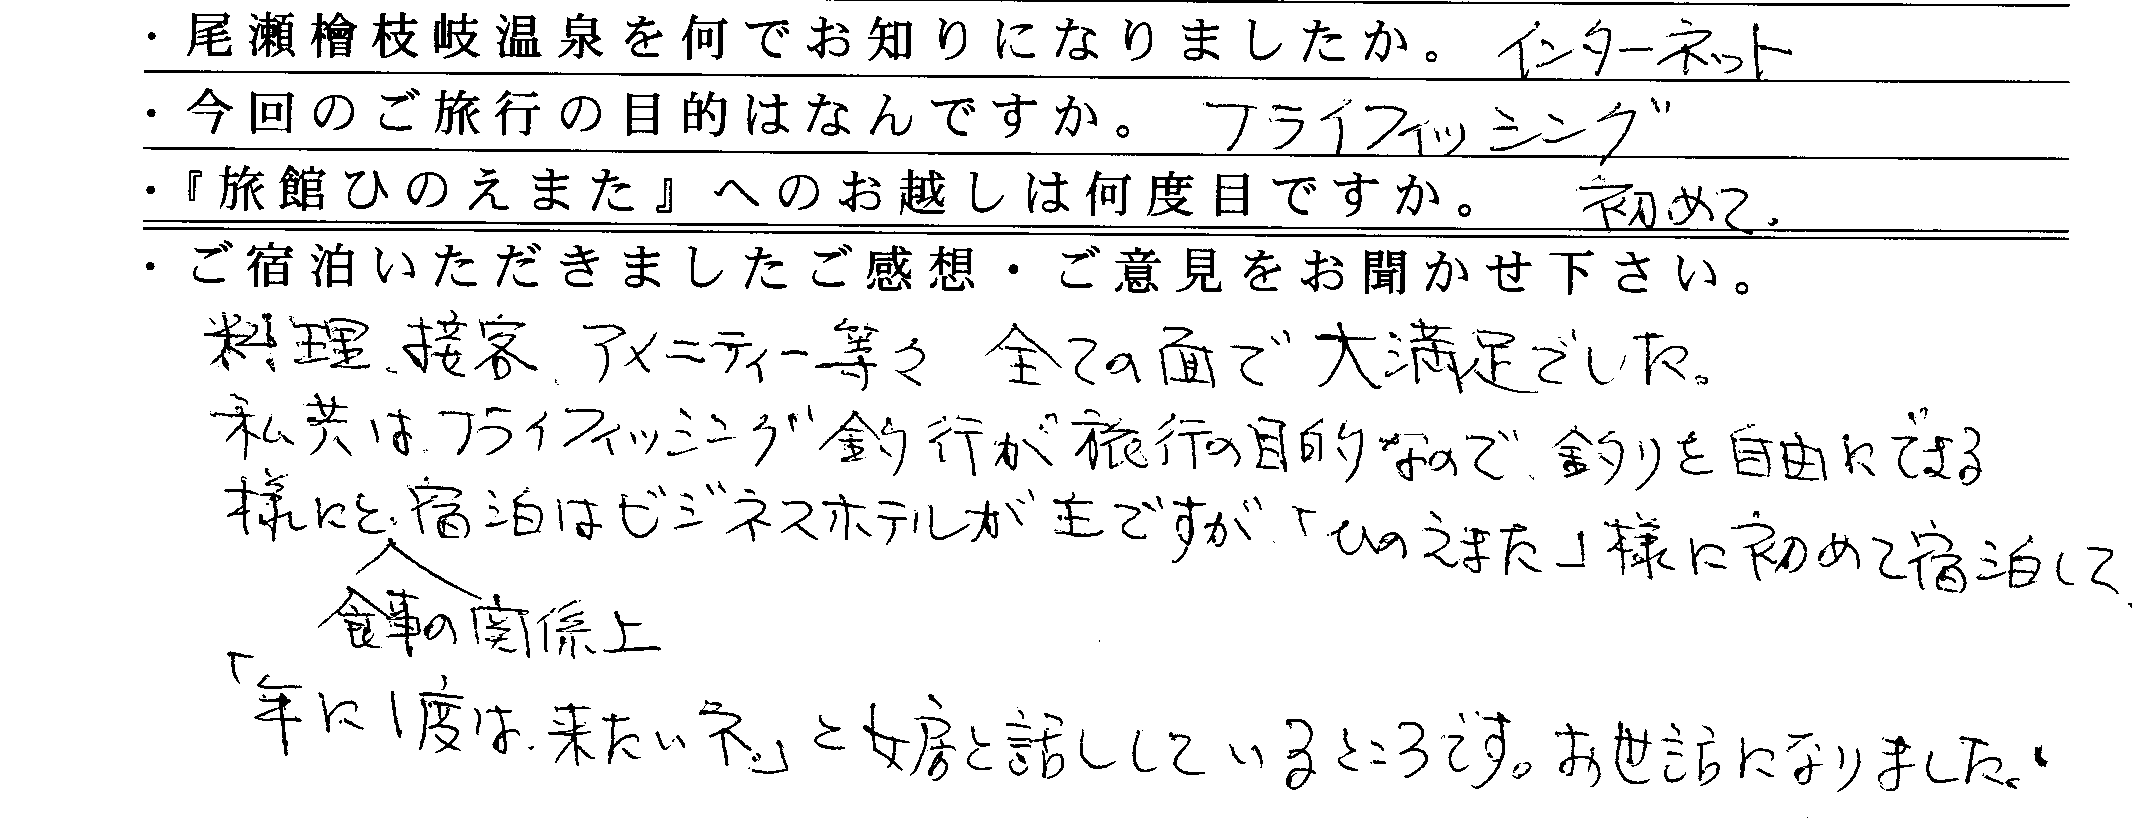 ・尾瀬檜枝岐温泉を何でお知りになりましたか。 インターネット
・今回のご旅行の目的はなんですか。 フライフィッシング
・『旅館ひのえまた』へのお越しは何度目ですか。 初めて.
・ご宿泊いただきましたご感想・ご意見をお聞かせ下さい。
料理、接客、アメニティー等々 全ての面で大満足でした。
私共はフライフィッシング釣行が旅行の目的なので、釣りを自由にできる
様にと、宿泊はビジネスホテルが主ですが、「ひのえまた」様に初めて宿泊して、
食事の関係上
「年に1度は、来たいネ。」と女房と話ししているところです。お世話になりました。